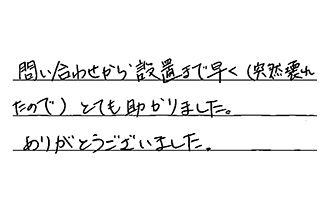 問い合わせから設置まで早く(突然壊れ
たので)とても助かりました。
ありがとうございました。